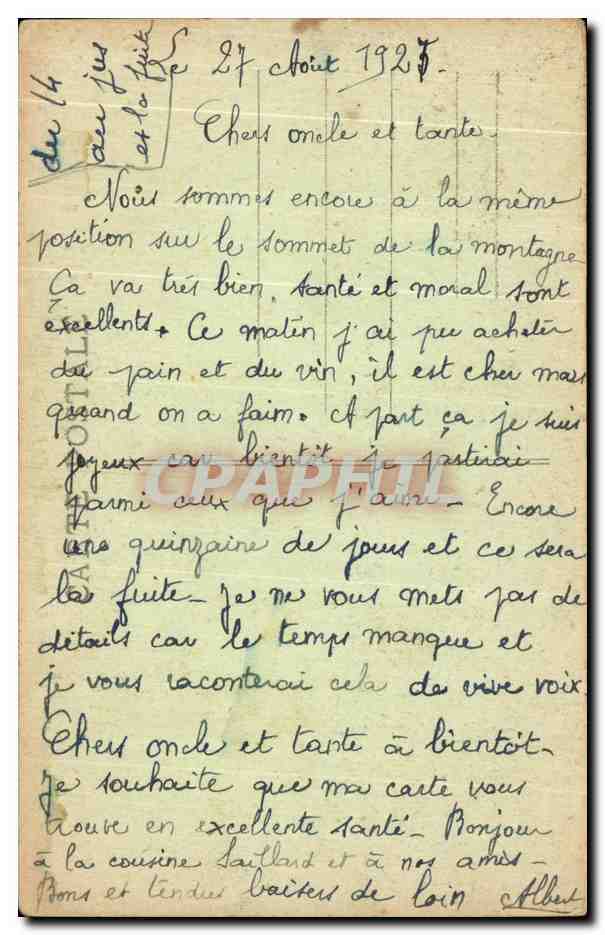 du 14
au jus
et la fuite
Le 27 Août 1925.
Chers oncle et tante.
Nous sommes encore à la même
position sur le sommet de la montagne
Ça va trés bien, santé et moral sont
excellents. Ce matin j'ai pu acheter
du pain et du vin, il est cher mais
quand on a faim. A part ça je suis
joyeux car bientôt je
parmi ceux que j'aime - Encore
une quinzaine de jours et ce sera
la fuite - Je ne vous mets pas de
détails car le temps manque et
je vous raconterai cela de vive voix.
Chers oncle et tante à bientôt -
Je souhaite que ma carte vous
trouve en excellente santé - Bonjour
à la cousine Saillard et à nos amis -
Bons et tendres baisers de loin Albert
CARTE POSTALE
CPAPHIL